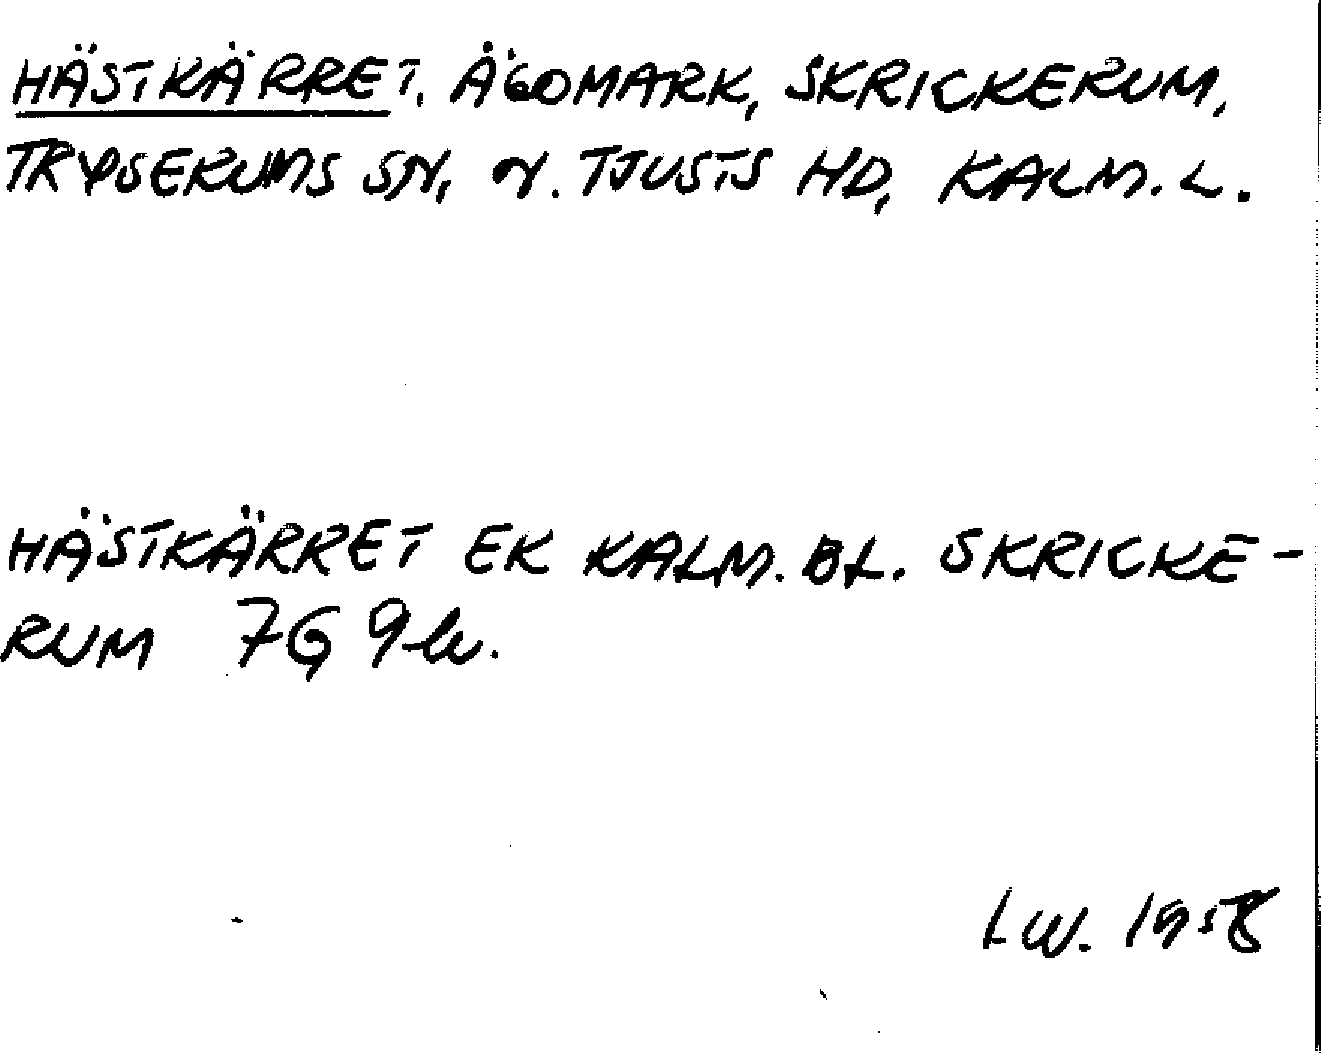 HÄSTKÄRRET, ÄGOMARK, SKRICKERUM,
TRYSERUMS SN, N. TJUSTS HD, KALM. L.
HÄSTKÄRRET EK KALM. BL. SKRICKE-
RUM 7G 9h.
LW. 1958